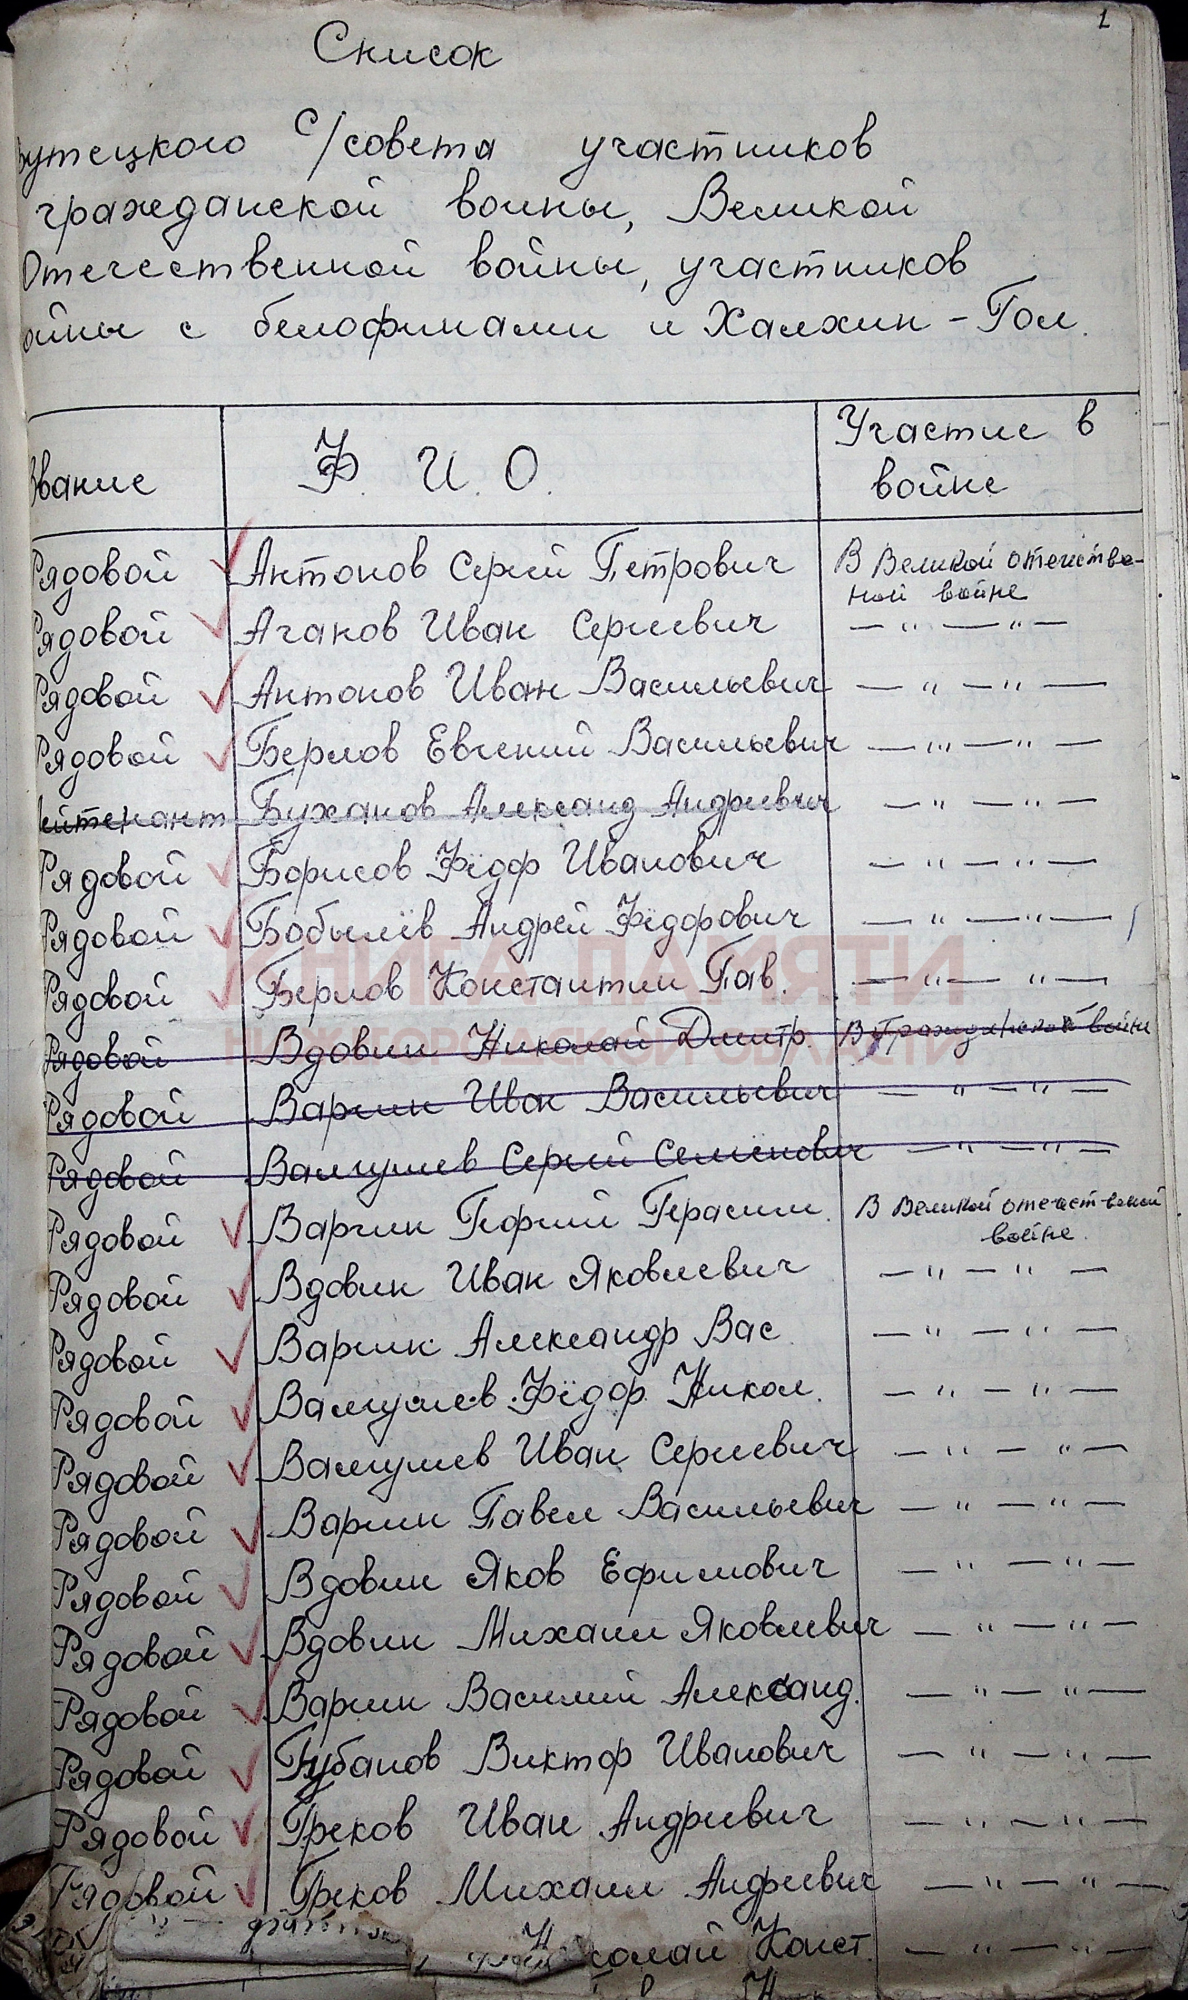 1
Список
утецкого с/совета участников
гражданской войны, Великой
Отечественной войны, участников
ойны с белофинами и Халхин-Гол.
Звание Ф. И. О. Участие в
войне
Рядовой Антонов Сергей Петрович В Великой отечестве-
ной войне
Рядовой Агаков Иван Сергеевич — " — " —
Рядовой Антонов Иван Васильевич — " — " —
Рядовой Берлов Евгений Васильевич — " — " —
Лейтенант Буханов Александ Андреевич — " — " —
Рядовой Борисов Фёдор Иванович — " — " —
Рядовой Бобылёв Андрей Фёдорович — " — " —
КНИГА ПАМЯТИ
Рядовой Берлов Константин Пав. — " — " —
НИЖЕГОРОДСКОЙ ОБЛАСТИ
Рядовой Вдовин Николай Дмитр. В Гражданской войне
Рядовой Варгин Иван Васильевич — " — " —
Рядовой Валгушев Сергей Семёнович — " — " —
Рядовой Варгин Георгий Герасим. В Великой отечественой
войне.
Рядовой Вдовин Иван Яковлевич — " — " —
Рядовой Варгин Александр Вас — " — " —
Рядовой Валгушев Фёдор Никол. — " — " —
Рядовой Валгушев Иван Сергеевич — " — " —
Рядовой Варгин Павел Васильевич — " — " —
Рядовой Вдовин Яков Ефимович — " — " —
Рядовой Вдовин Михаил Яковлевич — " — " —
Рядовой Варгин Василий Александ. — " — " —
Рядовой Губанов Виктор Иванович — " — " —
Рядовой Греков Иван Андреевич — " — " —
Рядовой Греков Михаил Андреевич — " — " —
колай Конст. — " — " —